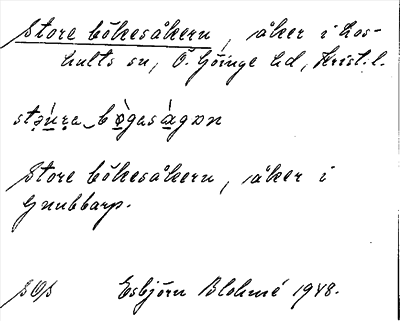 Store bökesåkern, åker i Los-
hults sn, Ö. Göinge hd, Krist. l.
Store bökesåkern, åker i
Gnubbarp.
SOS Esbjörn Blohmé 1948.